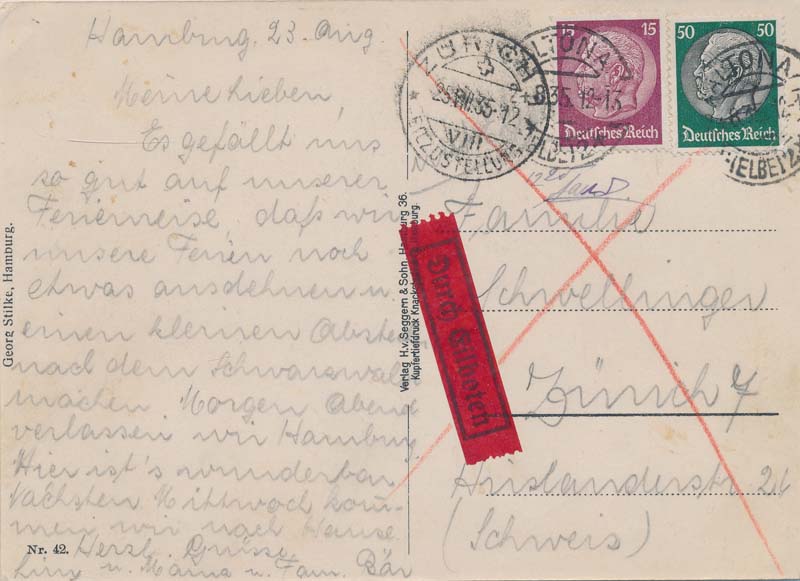 Hamburg. 23 Aug
Meine Lieben,
Es gefällt uns
so gut auf unserer
Ferienreise, daß wir
unsere Ferien noch
etwas ausdehnen u.
einen kleinen Abstecher
nach dem Schwarzwald
machen Morgen Abend
verlassen wir Hamburg
Hier ist's wunderbar
Nächsten Mittwoch kom-
men wir nach Hause.
Herzl. Grüsse
u. Mama u. Fam. Bär
Nr. 42.
Georg Stilke, Hamburg.
Verlag H.v. Seggern & Sohn, Hamburg 36.
Kupfertiefdruck Hamburg.
ZÜRICH
25.VIII.35-12
VIII
EILZUSTELLUNG
ALTONA
8.35.12-13
(ELBE) 2
15 15
Deutsches Reich
50 50
Deutsches Reich
ALTONA
(ELBE) 2
Durch Eilboten
Familie
Schwellinger
Zürich 7
(Schweiz)